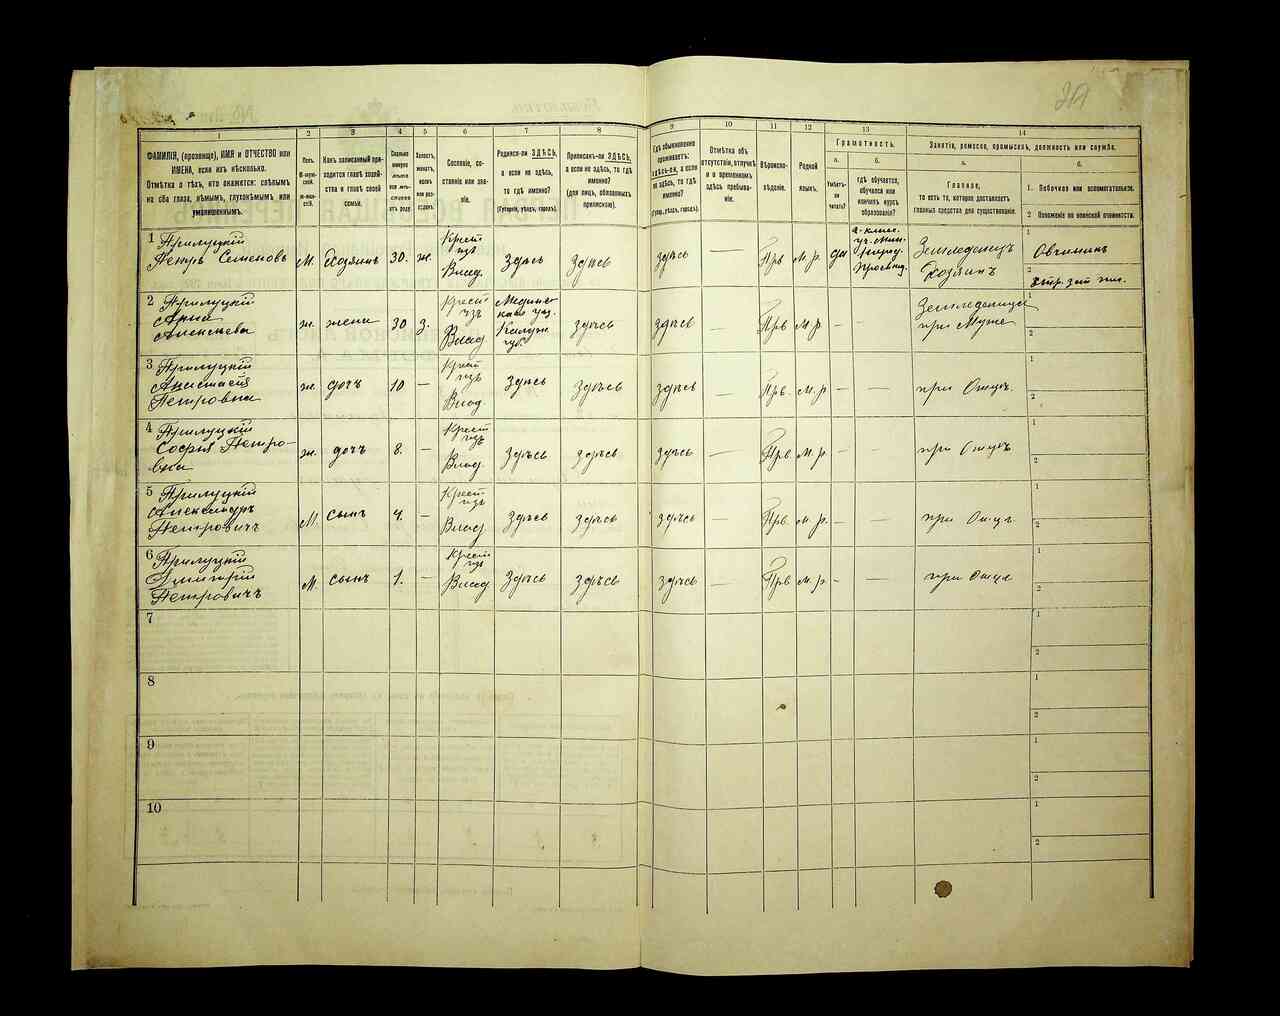 1
2
3
4
5
6
7
8
9
10
11
12
13
14
ФАМИЛІЯ, (прозвище), ИМЯ и ОТЧЕСТВО или
ИМЕНА, если ихъ нѣсколько.
Отмѣтка о тѣхъ, кто окажется: слѣпымъ
на оба глаза, нѣмымъ, глухонѣмымъ или
умалишеннымъ.
Полъ.
М-муж-
ской.
Ж-жен-
скій.
Какъ записанный при-
ходится главѣ хозяй-
ства и главѣ своей
семьи.
Сколько
минуло
лѣтъ
или мѣ-
сяцевъ
отъ роду.
Холостъ,
женатъ,
вдовъ
или раз-
веденъ.
Сословіе, со-
стояніе или зва-
ніе.
Родился-ли ЗДѢСЬ,
а если не здѣсь,
то гдѣ именно?
(Губернія, уѣздъ, городъ).
Приписанъ-ли ЗДѢСЬ,
а если не здѣсь, то гдѣ
именно?
(для лицъ, обязанныхъ
припискою).
Гдѣ обыкновенно
проживаетъ:
здѣсь-ли, а если
не здѣсь, то гдѣ
именно?
(Губер., уѣздъ, городъ).
Отмѣтка объ
отсутствіи, отлучкѣ
и о временномъ
здѣсь пребыва-
ніи.
Вѣроиспо-
вѣданіе.
Родной
языкъ.
Грамотность.
а.
Умѣетъ-
ли
читать?
б.
гдѣ обучается,
обучался или
кончилъ курсъ
образованія?
Занятіе, ремесло, промыселъ, должность или служба.
а.
Главное,
то есть то, которое доставляетъ
главныя средства для существованія.
б.
1. Побочное или вспомогательное.
2 Положеніе по воинской повинности.
1 Прилуцкій
Петръ Семеновъ
М.
Хозяинъ
30.
ж.
Крест
изъ
Влад.
Здѣсь
Здѣсь
здѣсь
—
Прв
м.р.
да
2-клас.
уч. Мин.
Народ.
Просвищ.
Земледелецъ
Хозяинъ
1
Овчиникъ
2
2 Прилуцкій
Анна
Алексеева
ж.
жена
30
з.
Крест
изъ
Влад.
Медынс-
каго уез.
Калуж.
губ.
здѣсь
здѣсь
—
Прв
м.р
—
—
Земледелица
при Муже
1
2
3 Прилуцкій
Анастасія
Петровна
ж.
дочъ
10
—
Крест
изъ
Влад.
Здѣсь
Здѣсь
здѣсь
—
Прв.
м.р
—
—
при Отцѣ.
1
2
4 Прилуцкій
Софья Петро-
вна
ж.
дочъ
8.
—
Крест
изъ
Влад.
Здѣсь
Здѣсь
здѣсь
—
Прв.
м.р.
—
—
при Отцѣ
1
2
5 Прилуцкій
Александръ
Петровичъ
М.
сынъ
4.
—
Крест
изъ
Влад.
Здѣсь
здѣсь
здѣсь
—
Прв.
м.р.
—
—
при Отцѣ.
1
2
6 Прилуцкій
Дмитрій
Петровичъ
М.
сынъ
1.
—
Крест
изъ
Влад
Здѣсь
здѣсь
здѣсь
—
Прв
м.р.
—
—
при Отце
1
2
7
1
2
8
1
2
9
1
2
10
1
2